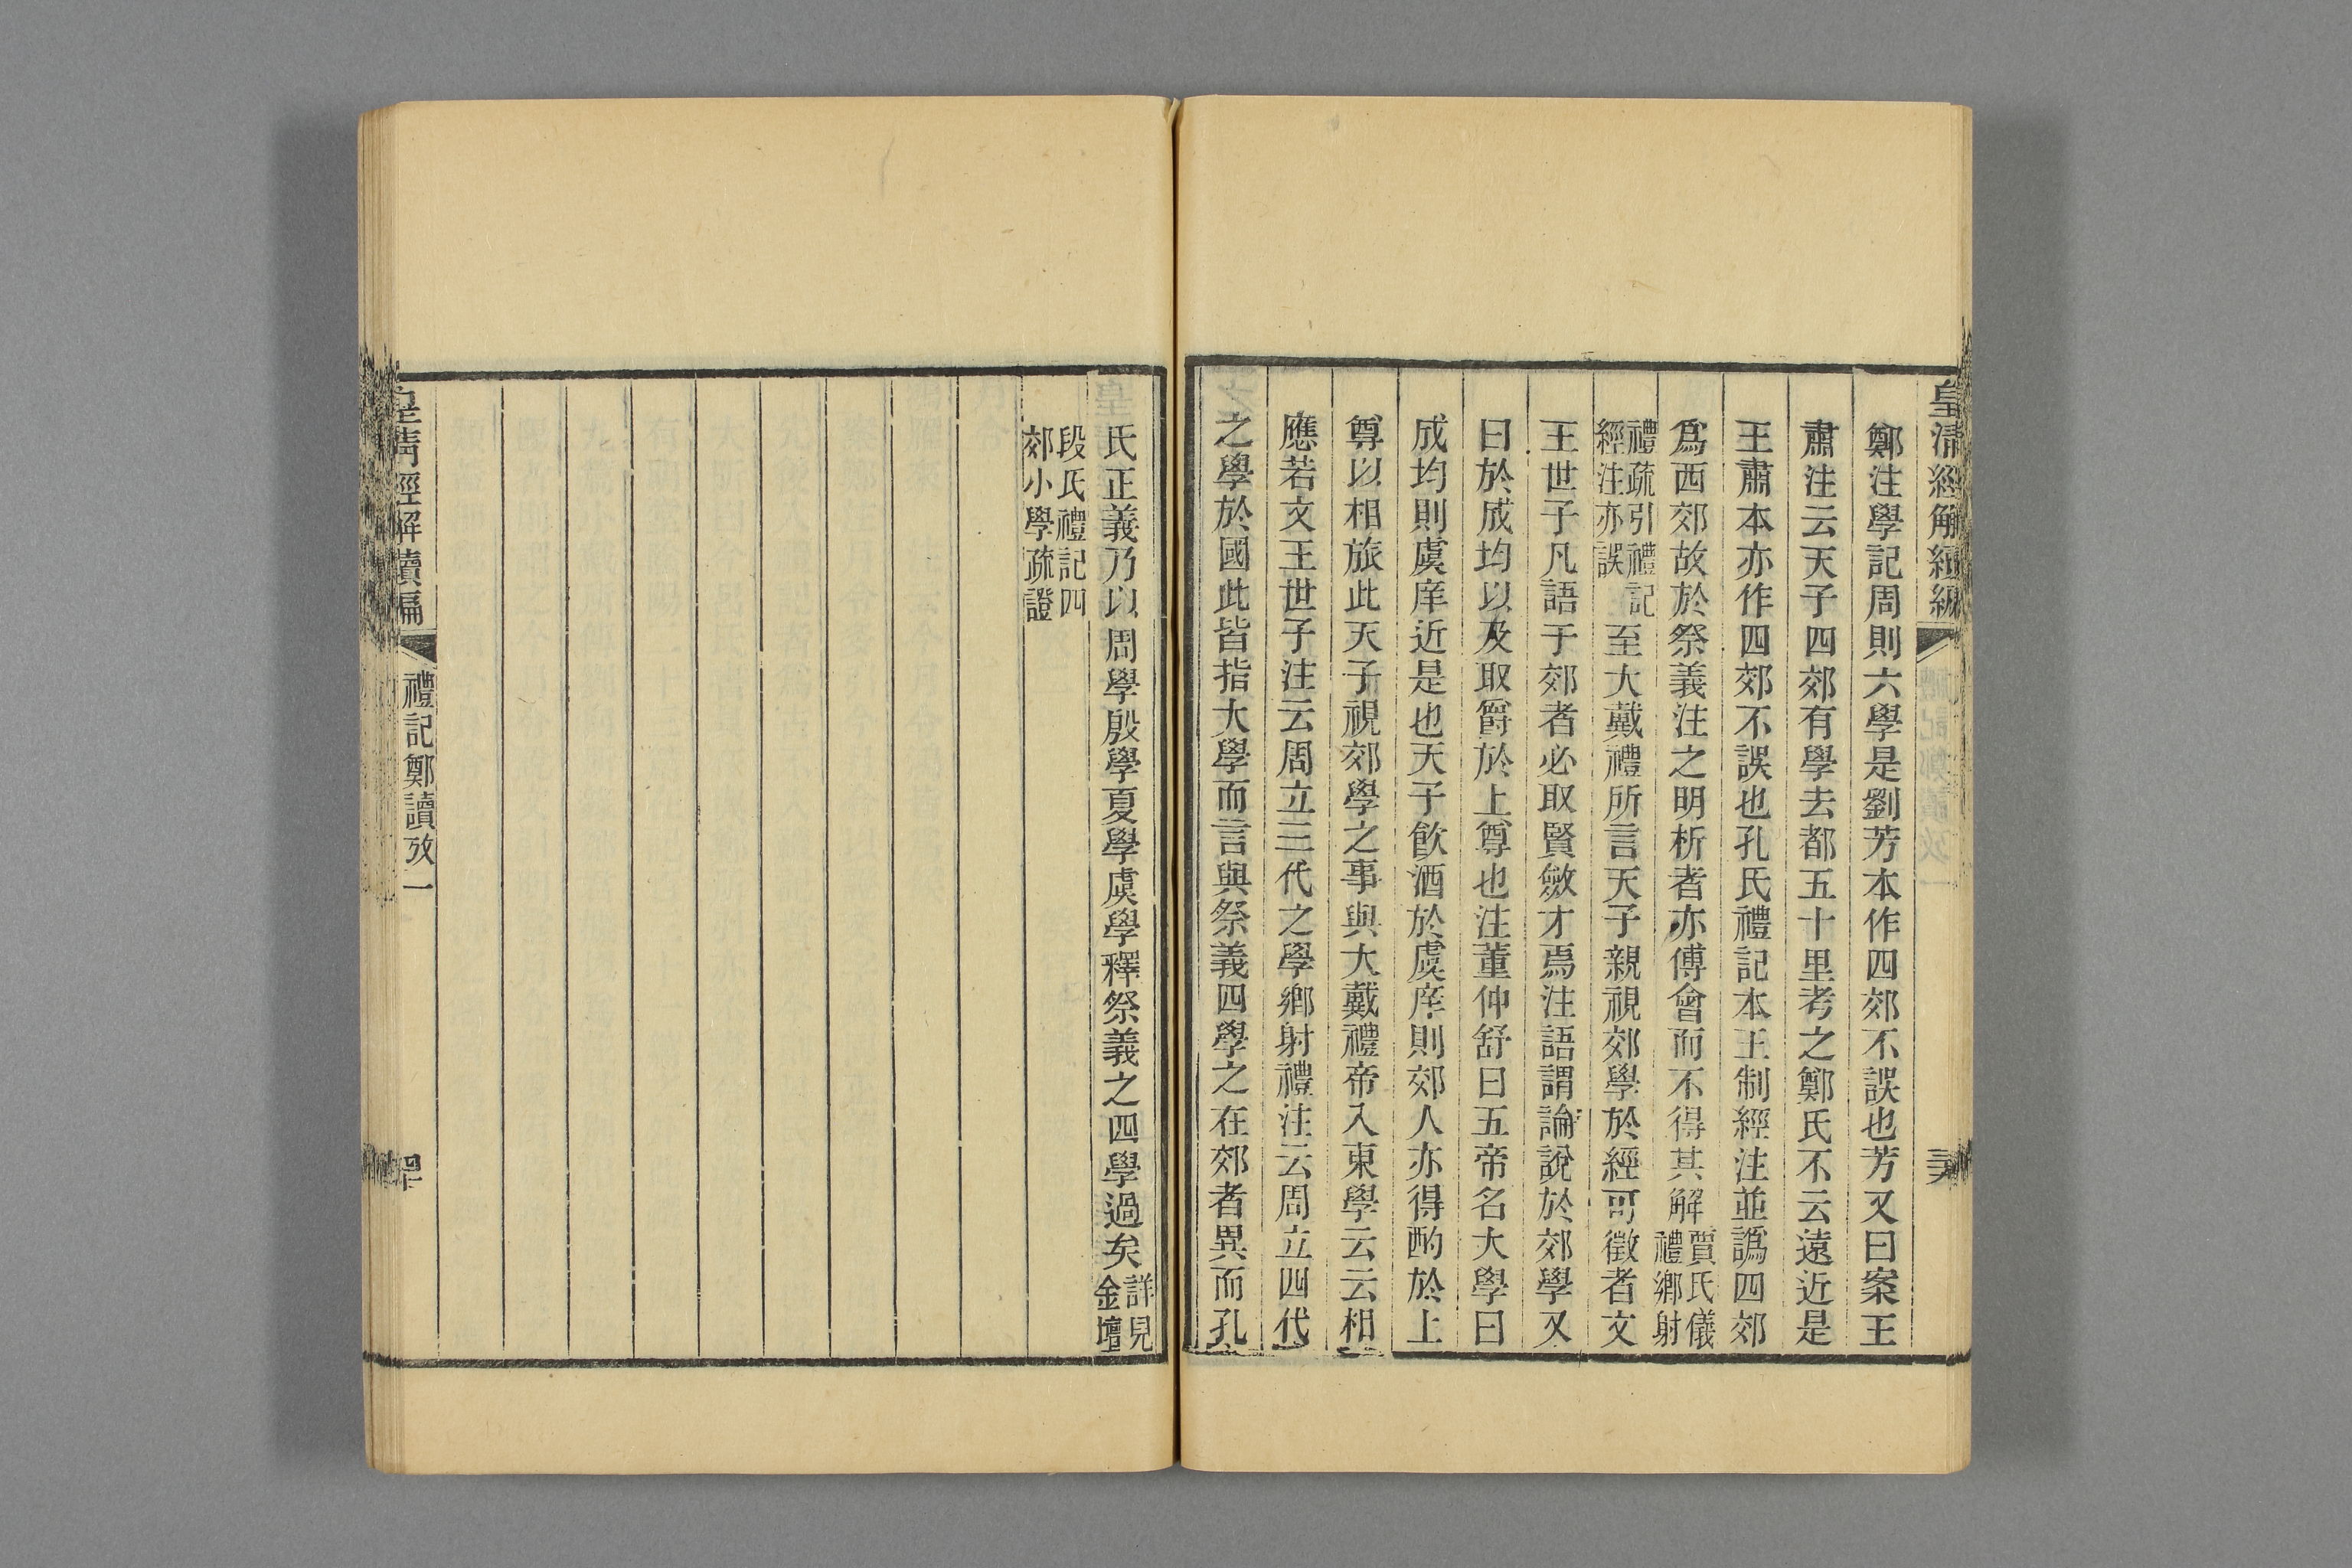 皇清經解續編
鄭注學記周則六學是劉芳本作四郊不誤也芳又曰案王
肅注云天子四郊有學去都五十里考之鄭氏不云遠近是
王肅本亦作四郊不誤也孔氏禮記本王制經注並譌四郊
爲西郊故於祭義注之明析者亦傅會而不得其解賈氏儀
禮鄉射
禮疏引禮記
經注亦誤
至大戴禮所言天子親視郊學於經可徵者文
王世子凡語于郊者必取賢斂才焉注語謂論說於郊學又
曰於成均以及取爵於上尊也注董仲舒曰五帝名大學曰
成均則虞庠近是也天子飲酒於虞庠則郊人亦得酌於上
尊以相旅此天子視郊學之事與大戴禮帝入東學云云相
應若文王世子注云周立三代之學鄉射禮注云周立四代
之學於國此皆指大學而言與祭義四學之在郊者異而孔
氏正義乃以周學殷學夏學虞學釋祭義之四學過矣詳見
金壇
段氏禮記四
郊小學疏證
皇清經解續編
禮記鄭讀攷一